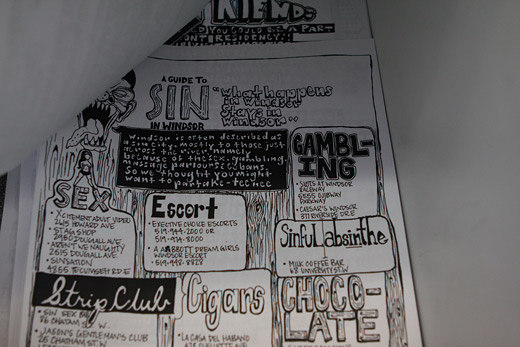 FRIENDS
A GUIDE TO
SIN
IN WINDSOR
"what happens
in windsor
stays in
windsor"
Windsor is often described as
a sin city, mostly to those just
across the river, namely
because of the sex, gambling,
massage parlours, cubans.
So we thought you might
want to partake - teehee
GAMBL-
ING
• SLOTS AT WINDSOR
RACEWAY
PARKWAY
• CAESAR'S WINDSOR
377 RIVERSIDE DR.E
SEX
• X'CITEMENT ADULT VIDEO
HOWARD AVE
• STAG SHOP
2950 DOUGALL AVE
• AREN'T WE NAUGHTY
2515 DOUGALL AVE
• SINSATION
4865 TECUMSEH RD.E
Escort
• EXECUTIVE CHOICE ESCORTS
519-944-2000 OR
519-974-8000
• A ABBOTT DREAM GIRLS
WINDSOR ESCORT
519-948-8828
Sinful absinthe
• MILK COFFEE BAR
68 UNIVERSITY ST.W
Strip Club
• SIN
86 CHATAM ST W.
• JASON'S GENTLEMAN'S CLUB
Cigars
• LA CASA DEL HABANO
CHOCO-
LATE